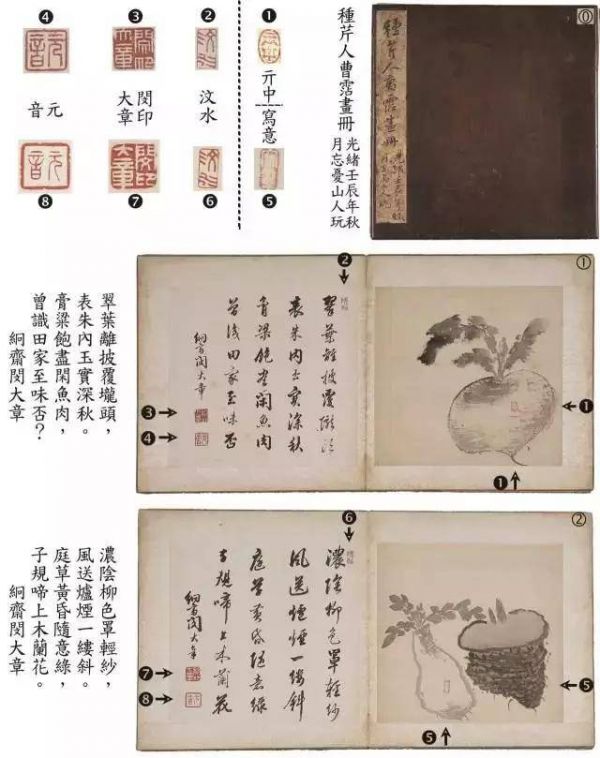 ❹ ❸ ❷ ❶
元音
閔印大章
汶水
亓中
寫意
❽ ❼ ❻ ❺
種芹人曹霑畫冊
光緒壬辰年秋
月忘憂山人玩
種芹人曹霑畫冊
⓪
翠葉離披覆壠頭，
表朱內玉實深秋。
膏粱飽盡閑魚肉，
曾識田家至味否？
絅齋閔大章
❷
翠葉離披覆壠頭
表朱內玉實深秋
膏粱飽盡閑魚肉
曾識田家至味否
絅齋閔大章
❸
❹
①
❶
❶
濃陰柳色罩輕紗，
風送爐煙一縷斜。
庭草黃昏隨意綠，
子規啼上木蘭花。
絅齋閔大章
❻
濃陰柳色罩輕紗
風送爐煙一縷斜
庭草黃昏隨意綠
子規啼上木蘭花
絅齋閔大章
❼
❽
②
❺
❺